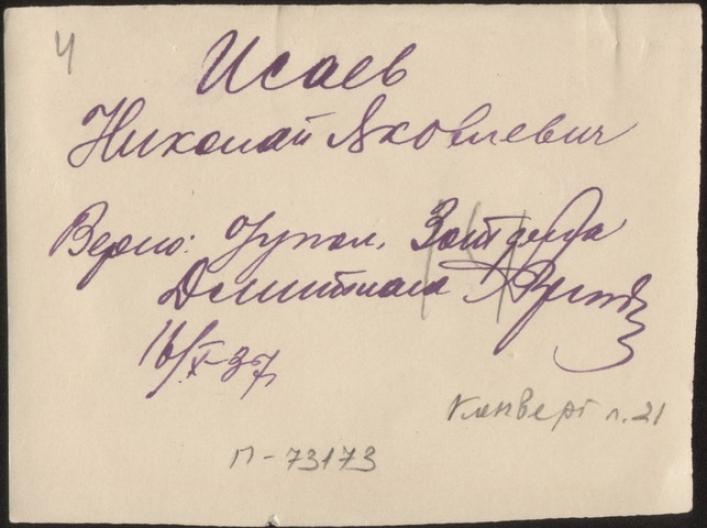 Ч
Исаев
Николай Яковлевич
Верно: Упол. 3 отдела
16/X-37
конверт л. 21
П-73173